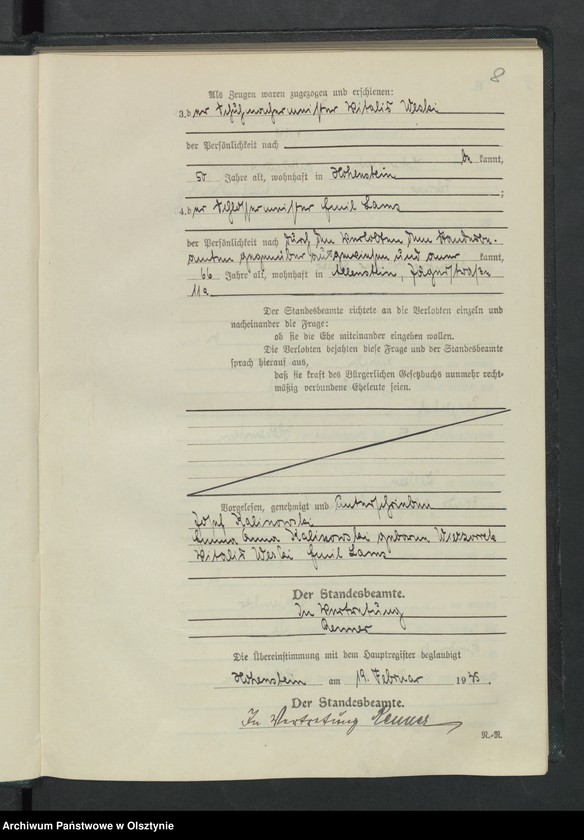 8
Als Zeugen waren zugezogen und erschienen:
3. der Schuhmachermeister Vitalis Weski
der Persönlichkeit nach
be kannt,
50 Jahre alt, wohnhaft in Hohenstein
;
4. der Schlossermeister Emil Lams
der Persönlichkeit nach durch den Verlobten dem Standesbe-
amten gegenüber ausgewiesen und aner kannt,
66 Jahre alt, wohnhaft in Allenstein, Jägerstraße
11a
Der Standesbeamte richtete an die Verlobten einzeln und
nacheinander die Frage:
ob sie die Ehe miteinander eingehen wollen.
Die Verlobten bejahten diese Frage und der Standesbeamte
sprach hierauf aus,
daß sie kraft des Bürgerlichen Gesetzbuchs nunmehr recht-
mäßig verbundene Eheleute seien.
Vorgelesen, genehmigt und unterschrieben
Josef Kalinowski
Anna Kalinowski geborene Wieczorrek
Vitalis Weski Emil Lams
Der Standesbeamte.
In Vertretung
Renner
Die Übereinstimmung mit dem Hauptregister beglaubigt
Hohenstein am 19. Februar 19
Der Standesbeamte.
In Vertretung Renner
R.-R.
Archiwum Państwowe w Olsztynie